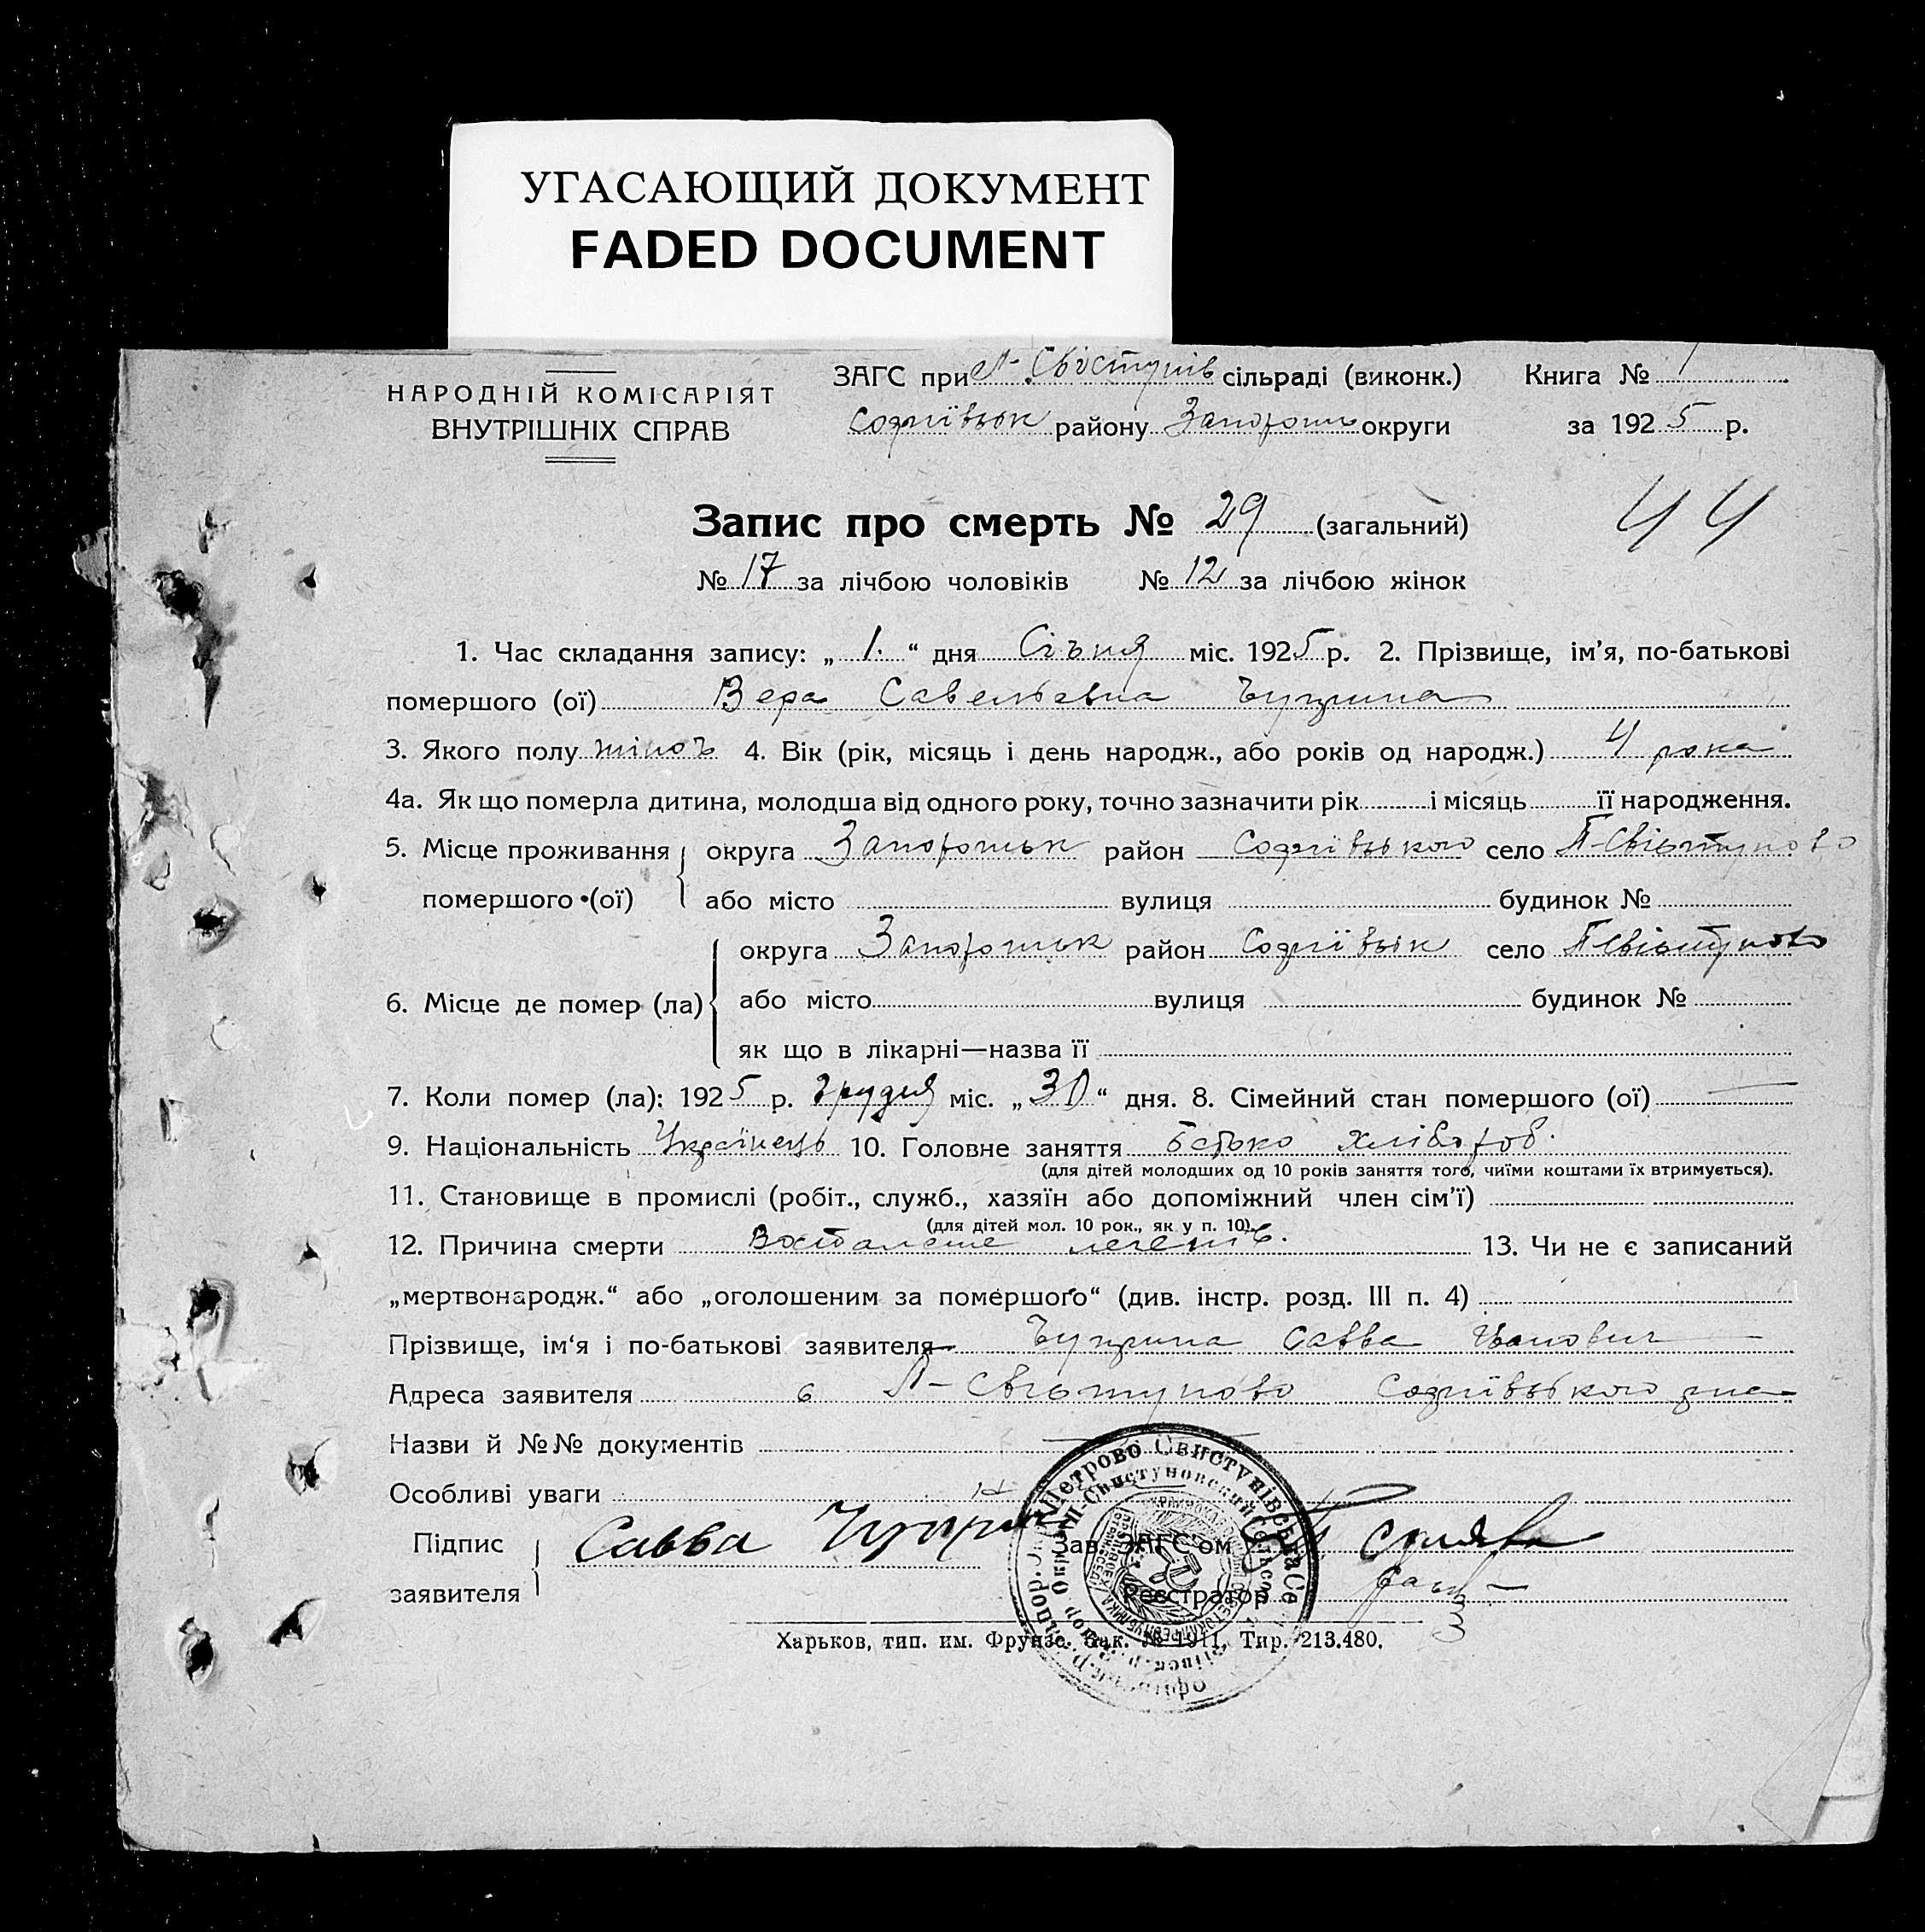 УГАСАЮЩИЙ ДОКУМЕНТ
FADED DOCUMENT
НАРОДНІЙ КОМІСАРІЯТ
ВНУТРІШНІХ СПРАВ
ЗАГС при П-Свістунів сільраді (виконк.) Книга № 1
Софиївськ району Запорож округи за 1925 р.
44
Запис про смерть № 29 (загальний)
№ 17 за лічбою чоловіків № 12 за лічбою жінок
1. Час складання запису: „ 1. “ дня Січня міс. 1925 р. 2. Прізвище, ім'я, по-батькові
помершого (ої) Вера Савельевна
3. Якого полу жіноч 4. Вік (рік, місяць і день народж., або років од народж.) 4 рока
4а. Як що померла дитина, молодша від одного року, точно зазначити рік і місяць її народження.
5. Місце проживання округа Запорожськ район Софиївського село П-Свістуново
помершого (ої) або місто вулиця будинок №
округа Запорожськ район Софиївськ село П-Свістуново
6. Місце де помер (ла) або місто вулиця будинок №
як що в лікарні—назва її
7. Коли помер (ла): 1925 р. Грудня міс. „ 30 “ дня. 8. Сімейний стан помершого (ої) —
9. Національність Українець 10. Головне заняття батько хлібороб.
(для дітей молодших од 10 років заняття того, чиїми коштами їх втримується).
11. Становище в промислі (робіт., служб., хазяїн або допоміжний член сім'ї)
(для дітей мол. 10 рок., як у п. 10).
12. Причина смерти легенів. 13. Чи не є записаний
„мертвонародж.“ або „оголошеним за помершого“ (див. інстр. розд. III п. 4)
Прізвище, ім'я і по-батькові заявителя Савва Іванович
Адреса заявителя с П-Свістуново Софиївського
Назви й №№ документів
Особливі уваги
Підпис
заявителя
Савва
Зав. ЗАГС'ом
Реєстратор
Петрово Свистунівська Сє
П-Свистуновский Сельсо
Харьков, тип. им. Фрунзе. Зак. № 1911, Тир. 213.480.